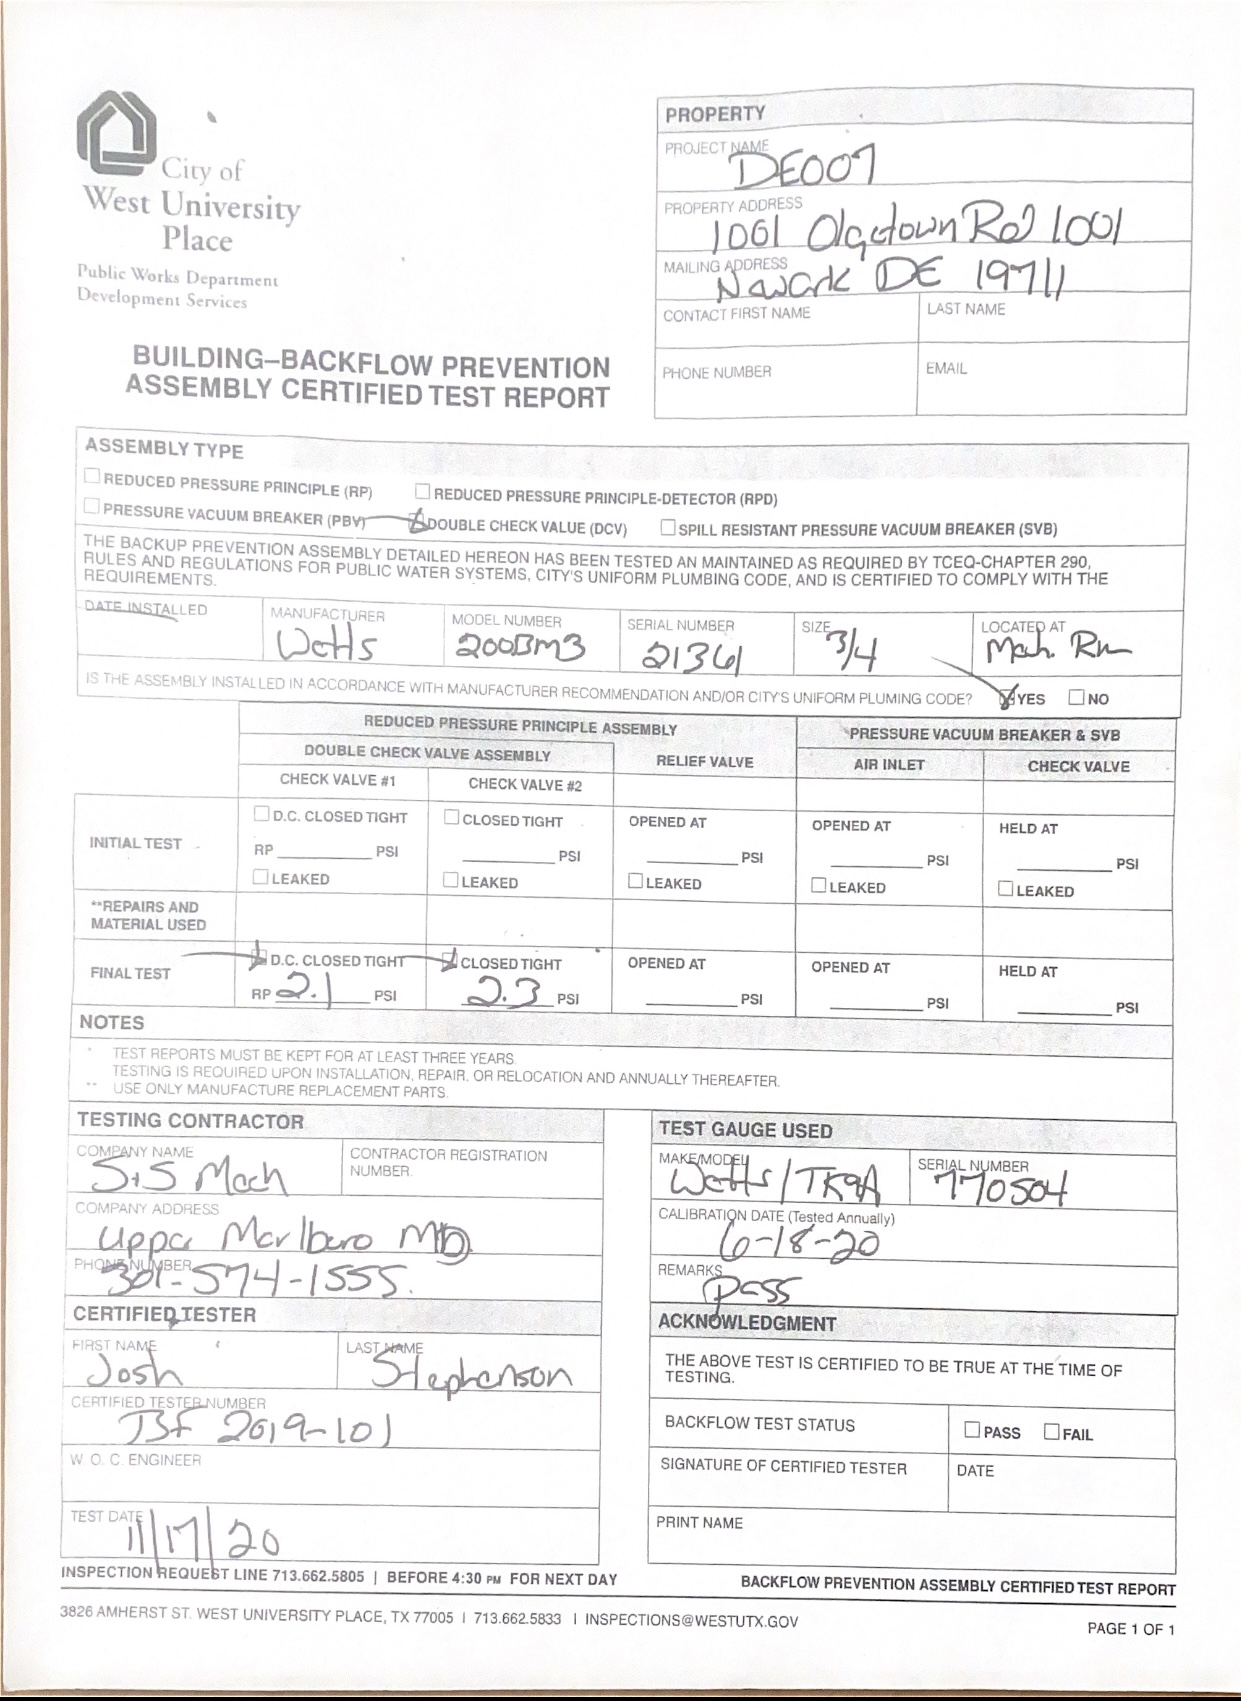 City of
West University
Place
Public Works Department
Development Services
BUILDING–BACKFLOW PREVENTION
ASSEMBLY CERTIFIED TEST REPORT
PROPERTY
PROJECT NAME
DE007
PROPERTY ADDRESS
1001 Olgetown Rd 1001
MAILING ADDRESS
Newark DE 19711
CONTACT FIRST NAME
LAST NAME
PHONE NUMBER
EMAIL
ASSEMBLY TYPE
REDUCED PRESSURE PRINCIPLE (RP) REDUCED PRESSURE PRINCIPLE-DETECTOR (RPD)
PRESSURE VACUUM BREAKER (PBV) DOUBLE CHECK VALUE (DCV) SPILL RESISTANT PRESSURE VACUUM BREAKER (SVB)
THE BACKUP PREVENTION ASSEMBLY DETAILED HEREON HAS BEEN TESTED AN MAINTAINED AS REQUIRED BY TCEQ-CHAPTER 290,
RULES AND REGULATIONS FOR PUBLIC WATER SYSTEMS, CITY'S UNIFORM PLUMBING CODE, AND IS CERTIFIED TO COMPLY WITH THE
REQUIREMENTS.
DATE INSTALLED MANUFACTURER MODEL NUMBER SERIAL NUMBER SIZE LOCATED AT
Watts 200BM3 21361 3/4 Mech. Rm
IS THE ASSEMBLY INSTALLED IN ACCORDANCE WITH MANUFACTURER RECOMMENDATION AND/OR CITY'S UNIFORM PLUMING CODE? YES NO
REDUCED PRESSURE PRINCIPLE ASSEMBLY PRESSURE VACUUM BREAKER & SVB
DOUBLE CHECK VALVE ASSEMBLY RELIEF VALVE AIR INLET CHECK VALVE
CHECK VALVE #1 CHECK VALVE #2
INITIAL TEST
D.C. CLOSED TIGHT CLOSED TIGHT OPENED AT OPENED AT HELD AT
RP PSI PSI PSI PSI PSI
LEAKED LEAKED LEAKED LEAKED LEAKED
**REPAIRS AND
MATERIAL USED
FINAL TEST
D.C. CLOSED TIGHT CLOSED TIGHT OPENED AT OPENED AT HELD AT
RP 2.1 PSI 2.3 PSI PSI PSI PSI
NOTES
* TEST REPORTS MUST BE KEPT FOR AT LEAST THREE YEARS.
TESTING IS REQUIRED UPON INSTALLATION, REPAIR, OR RELOCATION AND ANNUALLY THEREAFTER.
** USE ONLY MANUFACTURE REPLACEMENT PARTS.
TESTING CONTRACTOR
COMPANY NAME CONTRACTOR REGISTRATION
NUMBER.
S+S Mech
COMPANY ADDRESS
Upper Marlboro MD
PHONE NUMBER
301-574-1555.
CERTIFIED TESTER
FIRST NAME LAST NAME
Josh Stephenson
CERTIFIED TESTER NUMBER
TBF 2019-101
W. O. C. ENGINEER
TEST DATE
11/17/20
TEST GAUGE USED
MAKE/MODEL SERIAL NUMBER
Watts/TK9A 770504
CALIBRATION DATE (Tested Annually)
6-18-20
REMARKS
pass
ACKNOWLEDGMENT
THE ABOVE TEST IS CERTIFIED TO BE TRUE AT THE TIME OF
TESTING.
BACKFLOW TEST STATUS PASS FAIL
SIGNATURE OF CERTIFIED TESTER DATE
PRINT NAME
INSPECTION REQUEST LINE 713.662.5805 | BEFORE 4:30 PM FOR NEXT DAY
BACKFLOW PREVENTION ASSEMBLY CERTIFIED TEST REPORT
3826 AMHERST ST. WEST UNIVERSITY PLACE, TX 77005 | 713.662.5833 | INSPECTIONS@WESTUTX.GOV
PAGE 1 OF 1